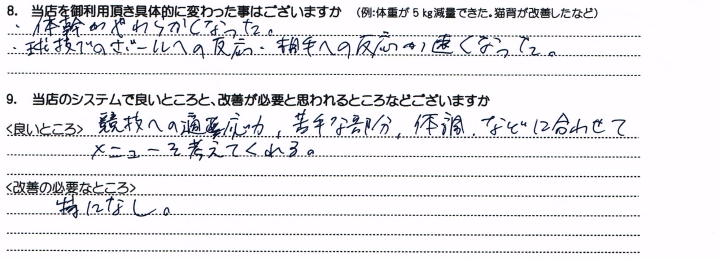 8. 当店を御利用頂き具体的に変わった事はございますか (例:体重が5kg減量できた。猫背が改善したなど)
・体幹がやわらかくなった。
・球技でのボールへの反応・相手への反応が速くなった。
9. 当店のシステムで良いところと、改善が必要と思われるところなどございますか
<良いところ> 競技への適応力、苦手な部分、体調、などに合わせて
メニューを考えてくれる。
<改善の必要なところ>
特になし。